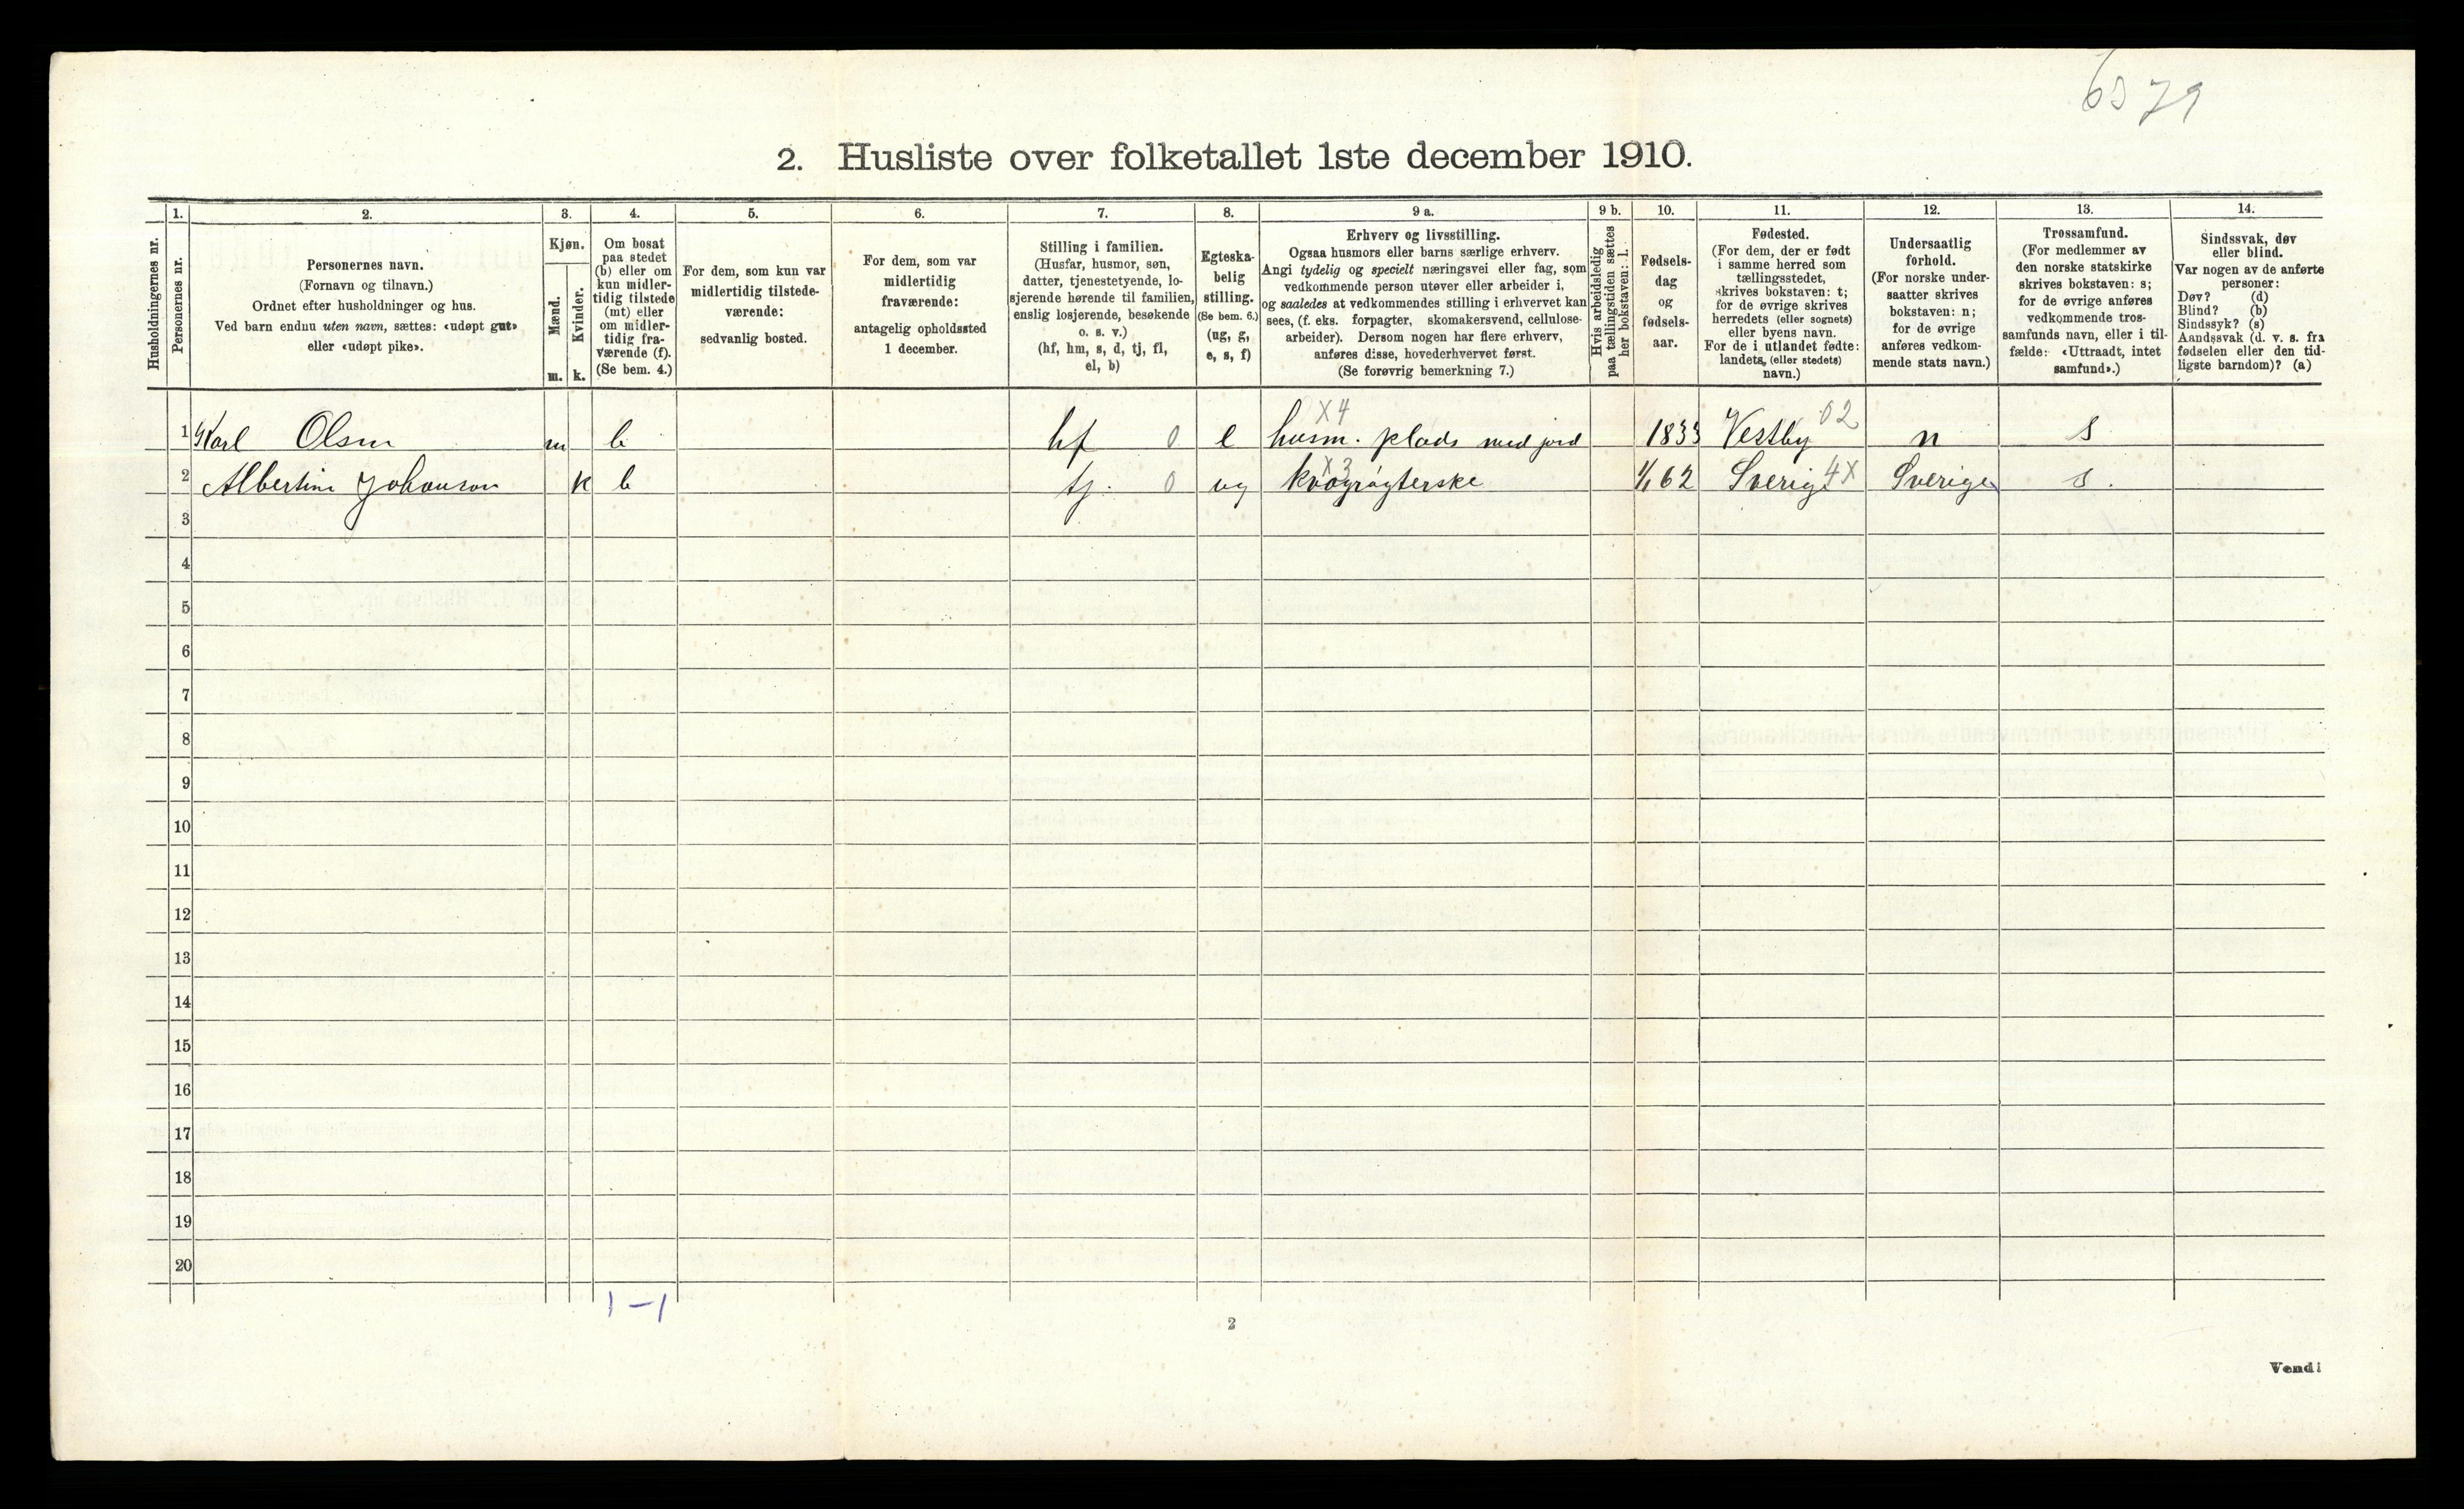 6579
2. Husliste over folketallet 1ste december 1910.
Husholdningernes nr.
1.
Personernes nr.
2.
Personernes navn.
(Fornavn og tilnavn.)
Ordnet efter husholdninger og hus.
Ved barn endnu uten navn, sættes: «udøpt gut»
eller «udøpt pike».
3.
Kjøn.
Mænd.
m.
Kvinder.
k.
4.
Om bosat
paa stedet
(b) eller om
kun midler-
tidig tilstede
(mt) eller
om midler-
tidig fra-
værende (f).
(Se bem. 4.)
5.
For dem, som kun var
midlertidig tilstede-
værende:
sedvanlig bosted.
6.
For dem, som var
midlertidig
fraværende:
antagelig opholdssted
1 december.
7.
Stilling i familien.
(Husfar, husmor, søn,
datter, tjenestetyende, lo-
sjerende hørende til familien,
enslig losjerende, besøkende
o. s. v.)
(hf, hm, s, d, tj, fl,
el, b)
8.
Egteska-
belig
stilling.
(Se bem. 6.)
(ug, g,
e, s, f)
9 a.
Erhverv og livsstilling.
Ogsaa husmors eller barns særlige erhverv.
Angi tydelig og specielt næringsvei eller fag, som
vedkommende person utøver eller arbeider i,
og saaledes at vedkommendes stilling i erhvervet kan
sees, (f. eks. forpagter, skomakersvend, cellulose-
arbeider). Dersom nogen har flere erhverv,
anføres disse, hovederhvervet først.
(Se forøvrig bemerkning 7.)
9 b.
Hvis arbeidsledig
paa tællingstiden sættes
her bokstaven: l.
10.
Fødsels-
dag
og
fødsels-
aar.
11.
Fødested.
(For dem, der er født
i samme herred som
tællingsstedet,
skrives bokstaven: t;
for de øvrige skrives
herredets (eller sognets)
eller byens navn.
For de i utlandet fødte:
landets (eller stedets)
navn.)
12.
Undersaatlig
forhold.
(For norske under-
saatter skrives
bokstaven: n;
for de øvrige
anføres vedkom-
mende stats navn.)
13.
Trossamfund.
(For medlemmer av
den norske statskirke
skrives bokstaven: s;
for de øvrige anføres
vedkommende tros-
samfunds navn, eller i til-
fælde: «Uttraadt, intet
samfund».)
14.
Sindssvak, døv
eller blind.
Var nogen av de anførte
personer:
Døv? (d)
Blind? (b)
Sindssyk? (s)
Aandssvak (d. v. s. fra
fødselen eller den tid-
ligste barndom)? (a)
X4 02
1 Karl Olsen m b hf 0 e husm. plads med jord 1833 Vestby n s
X3 4X
2 Albertine Johanson k b tj. 0 ug kvægrøgterske 1/1 62 Sverige Sverige s.
3
4
5
6
7
8
9
10
11
12
13
14
15
16
17
18
19
20
1-1
2
Vend!